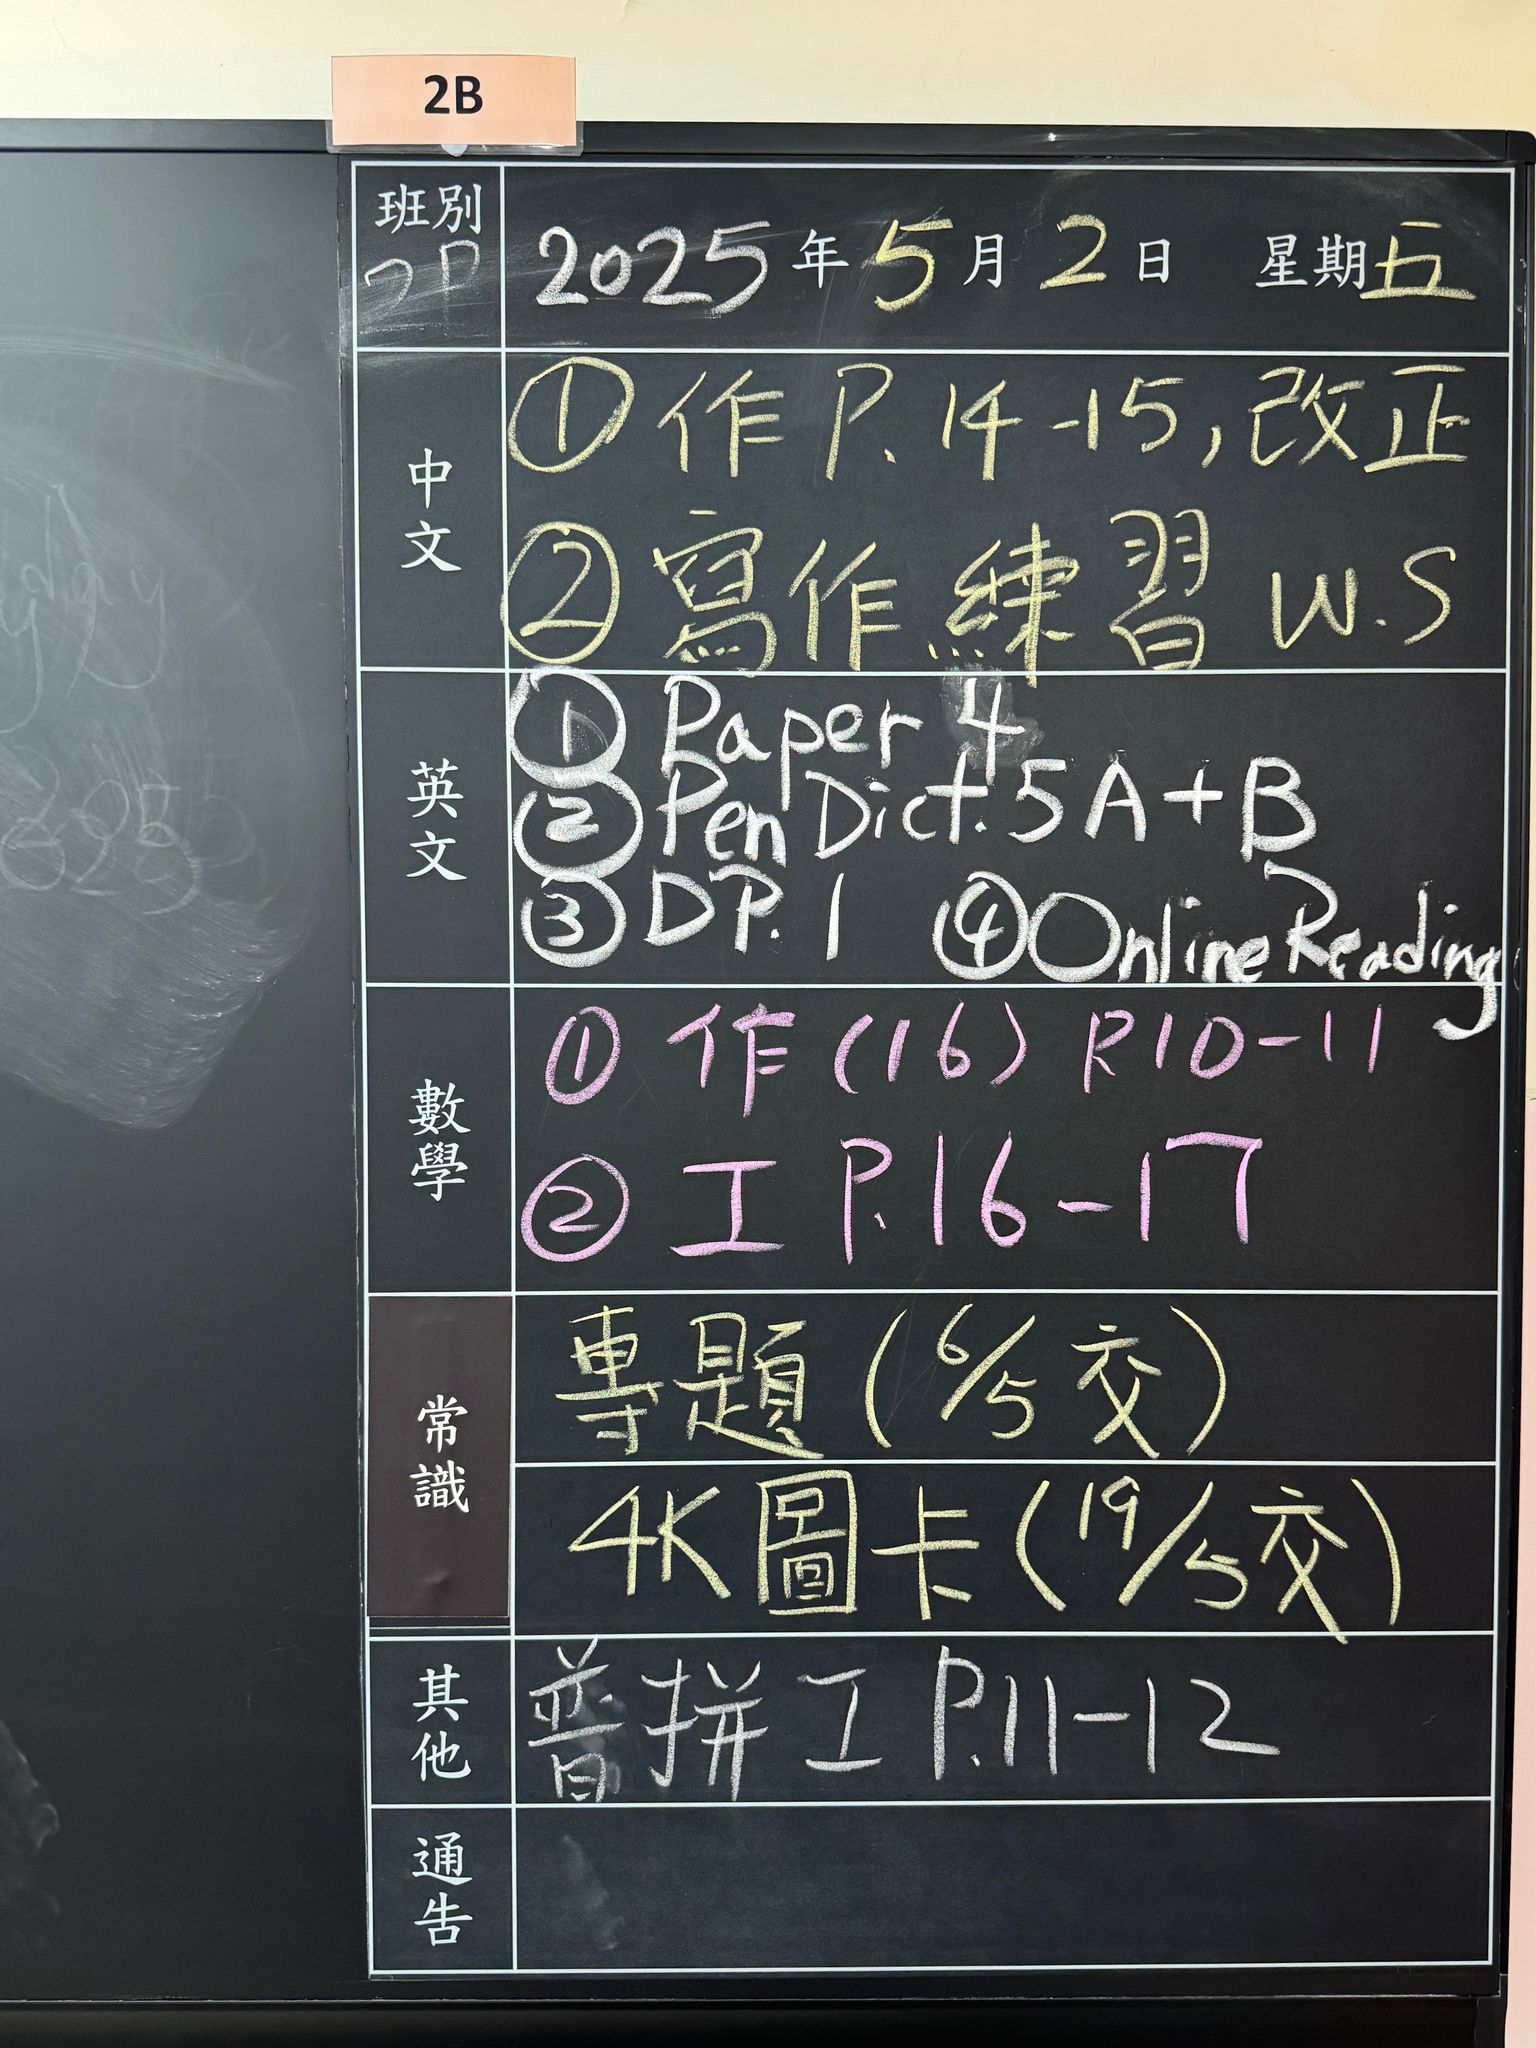 2B
班別
2025年5月2日 星期五
中文
①作P.14-15,改正
②寫作練習 W.S
英文
①Paper 4
②Pen Dict.5A+B
③DP.1 ④Online Reading
數學
①作(16) P.10-11
②工 P.16-17
常識
專題(6/5交)
4K圖卡(19/5交)
其他
普拼工P.11-12
通告